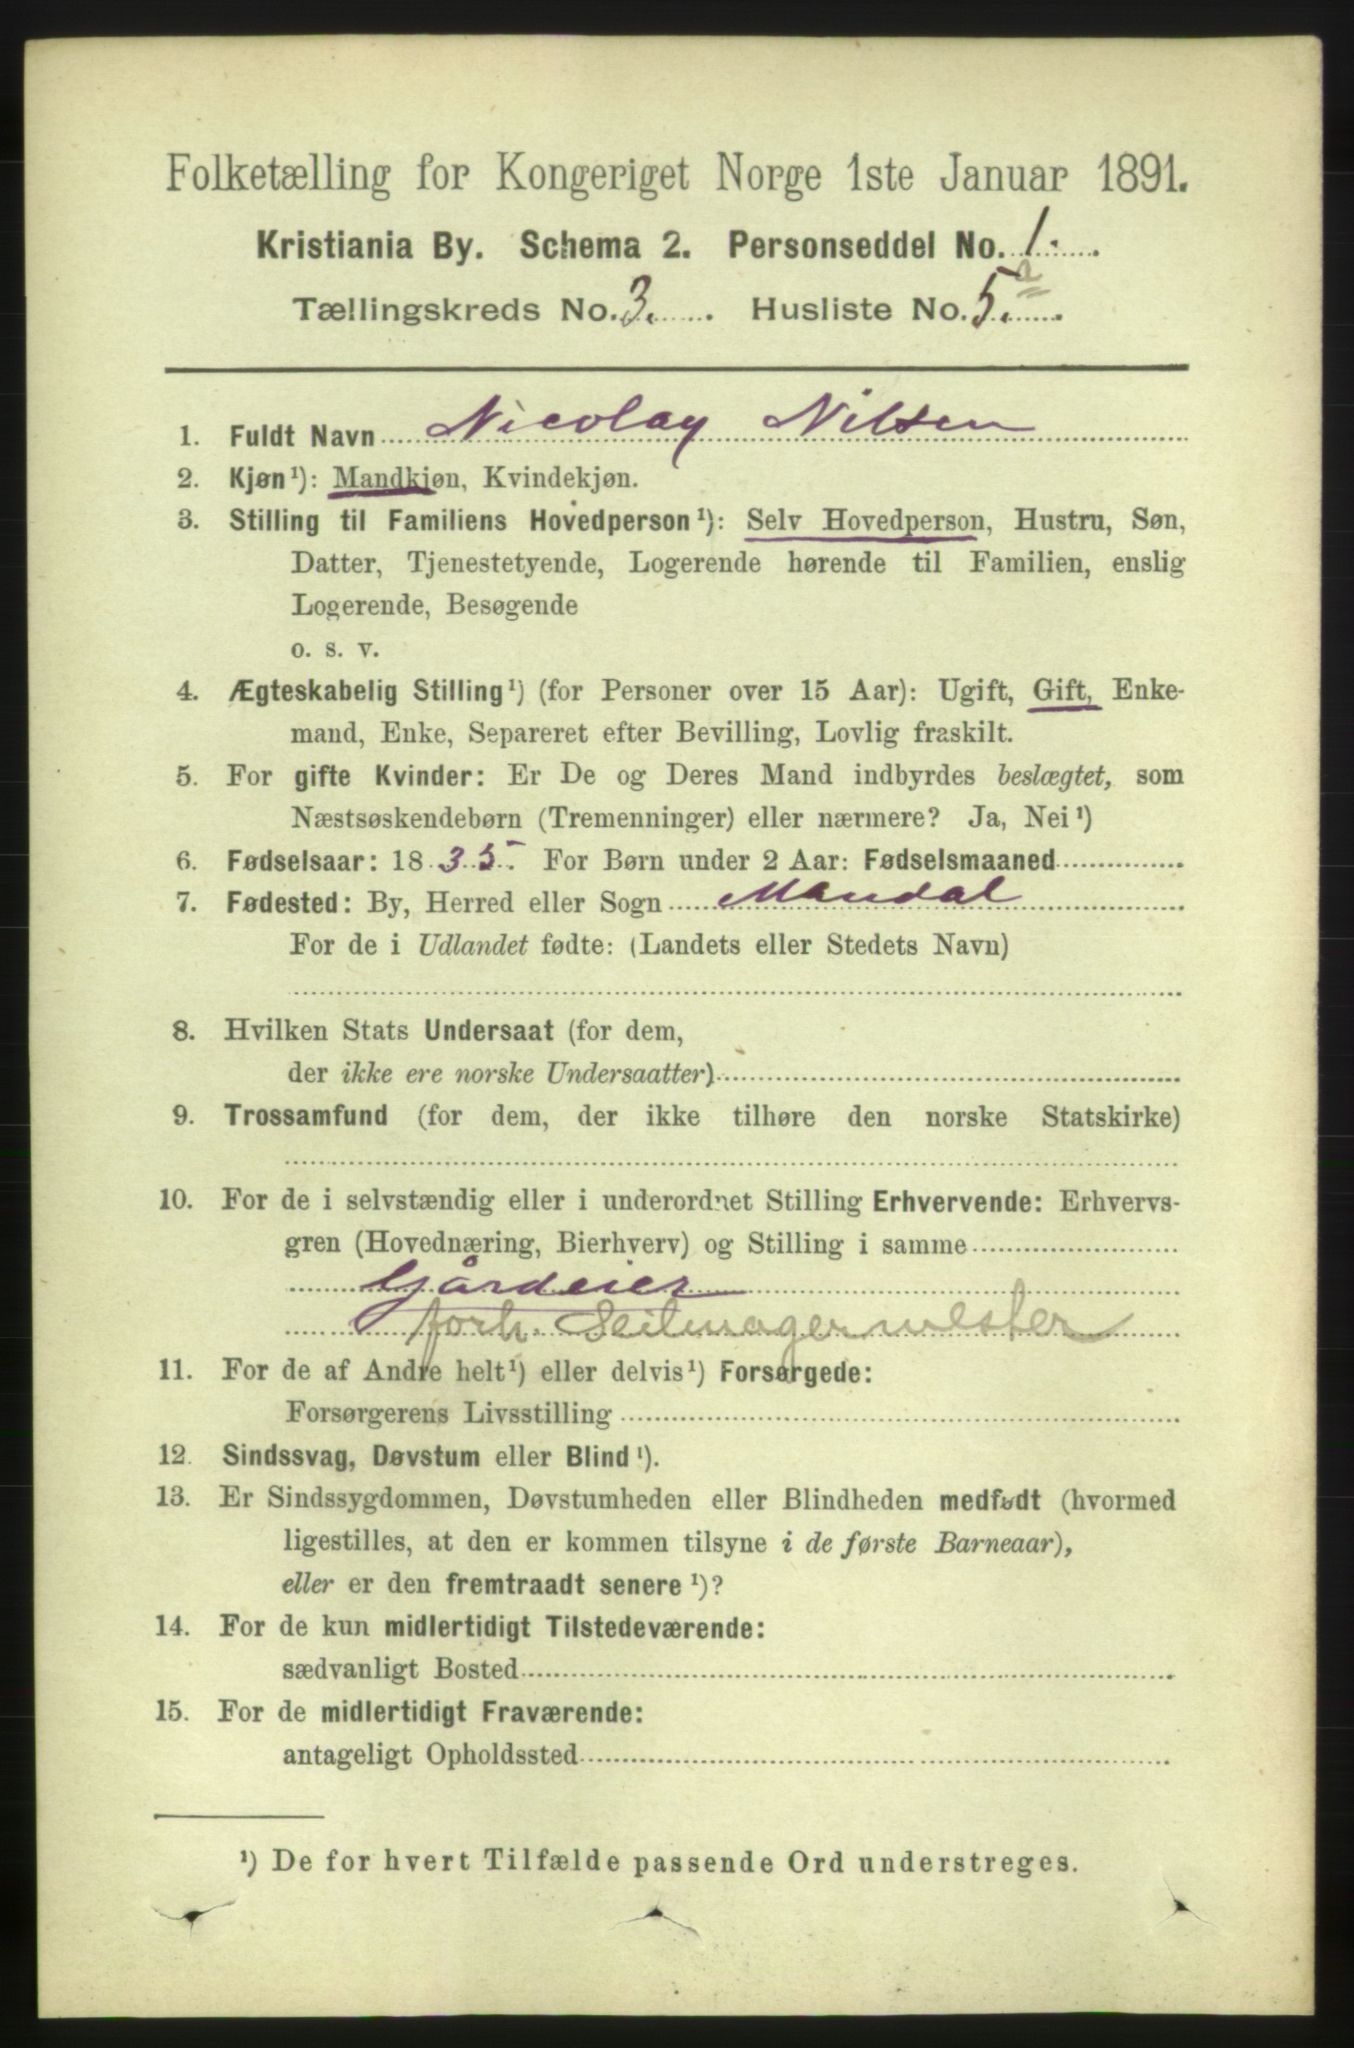 Folketælling for Kongeriget Norge 1ste Januar 1891.
Kristiania By. Schema 2. Personseddel No. 1.
Tællingskreds No. 3. Husliste No. 5.a
1. Fuldt Navn Nicolay Nilsen
2. Kjøn¹): Mandkjøn, Kvindekjøn.
3. Stilling til Familiens Hovedperson¹): Selv Hovedperson, Hustru, Søn,
Datter, Tjenestetyende, Logerende hørende til Familien, enslig
Logerende, Besøgende
o. s. v.
4. Ægteskabelig Stilling¹) (for Personer over 15 Aar): Ugift, Gift, Enke-
mand, Enke, Separeret efter Bevilling, Lovlig fraskilt.
5. For gifte Kvinder: Er De og Deres Mand indbyrdes beslægtet, som
Næstsøskendebørn (Tremenninger) eller nærmere? Ja, Nei¹)
6. Fødselsaar: 1835. For Børn under 2 Aar: Fødselsmaaned
7. Fødested: By, Herred eller Sogn Mandal
For de i Udlandet fødte: (Landets eller Stedets Navn)
8. Hvilken Stats Undersaat (for dem,
der ikke ere norske Undersaatter)
9. Trossamfund (for dem, der ikke tilhøre den norske Statskirke)
10. For de i selvstændig eller i underordnet Stilling Erhvervende: Erhvervs-
gren (Hovednæring, Bierhverv) og Stilling i samme
Gårdeier
forh. Seilmagermester
11. For de af Andre helt¹) eller delvis¹) Forsørgede:
Forsørgerens Livsstilling
12. Sindssvag, Døvstum eller Blind¹).
13. Er Sindssygdommen, Døvstumheden eller Blindheden medfødt (hvormed
ligestilles, at den er kommen tilsyne i de første Barneaar),
eller er den fremtraadt senere¹)?
14. For de kun midlertidigt Tilstedeværende:
sædvanligt Bosted
15. For de midlertidigt Fraværende:
antageligt Opholdssted
¹) De for hvert Tilfælde passende Ord understreges.